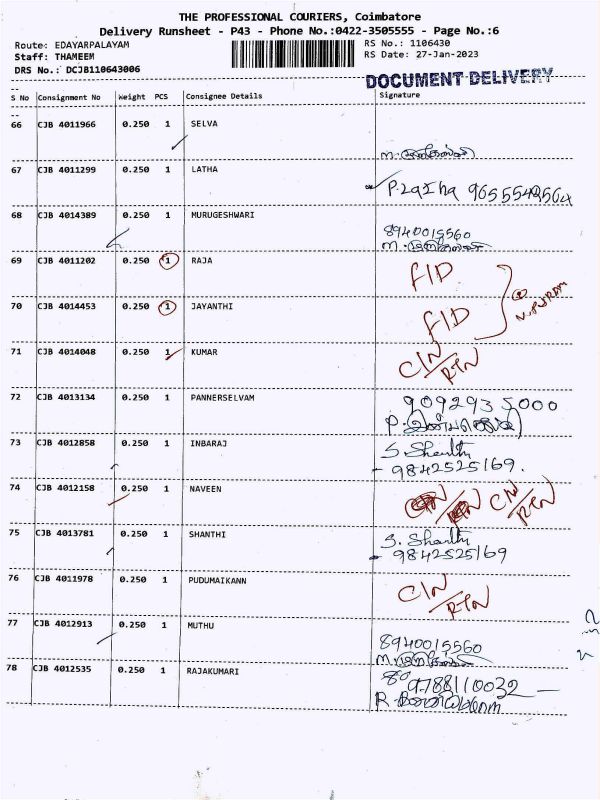 THE PROFESSIONAL COURIERS, Coimbatore
Delivery Runsheet - P43 - Phone No.:0422-3505555 - Page No.:6
Route: EDAYARPALAYAM RS No.: 1106430
Staff: THAMEEM RS Date: 27-Jan-2023
DRS No.: DCJB110643006
DOCUMENT DELIVERY
S No Consignment No Weight PCS Consignee Details Signature
66 CJB 4011966 0.250 1 SELVA
67 CJB 4011299 0.250 1 LATHA
P.Latha 9655542564
68 CJB 4014389 0.250 1 MURUGESHWARI
8940015560
69 CJB 4011202 0.250 1 RAJA
FID
70 CJB 4014453 0.250 1 JAYANTHI
FID
71 CJB 4014048 0.250 1 KUMAR
CIN/RTN
72 CJB 4013134 0.250 1 PANNERSELVAM
9092935000
73 CJB 4012858 0.250 1 INBARAJ
S. Shanthi
- 9842525169.
74 CJB 4012158 0.250 1 NAVEEN
CIN/RTN
75 CJB 4013781 0.250 1 SHANTHI
S. Shanthi
- 9842525169
76 CJB 4011978 0.250 1 PUDUMAIKANN
CIN/RTN
77 CJB 4012913 0.250 1 MUTHU
8940015560
78 CJB 4012535 0.250 1 RAJAKUMARI
9788110032